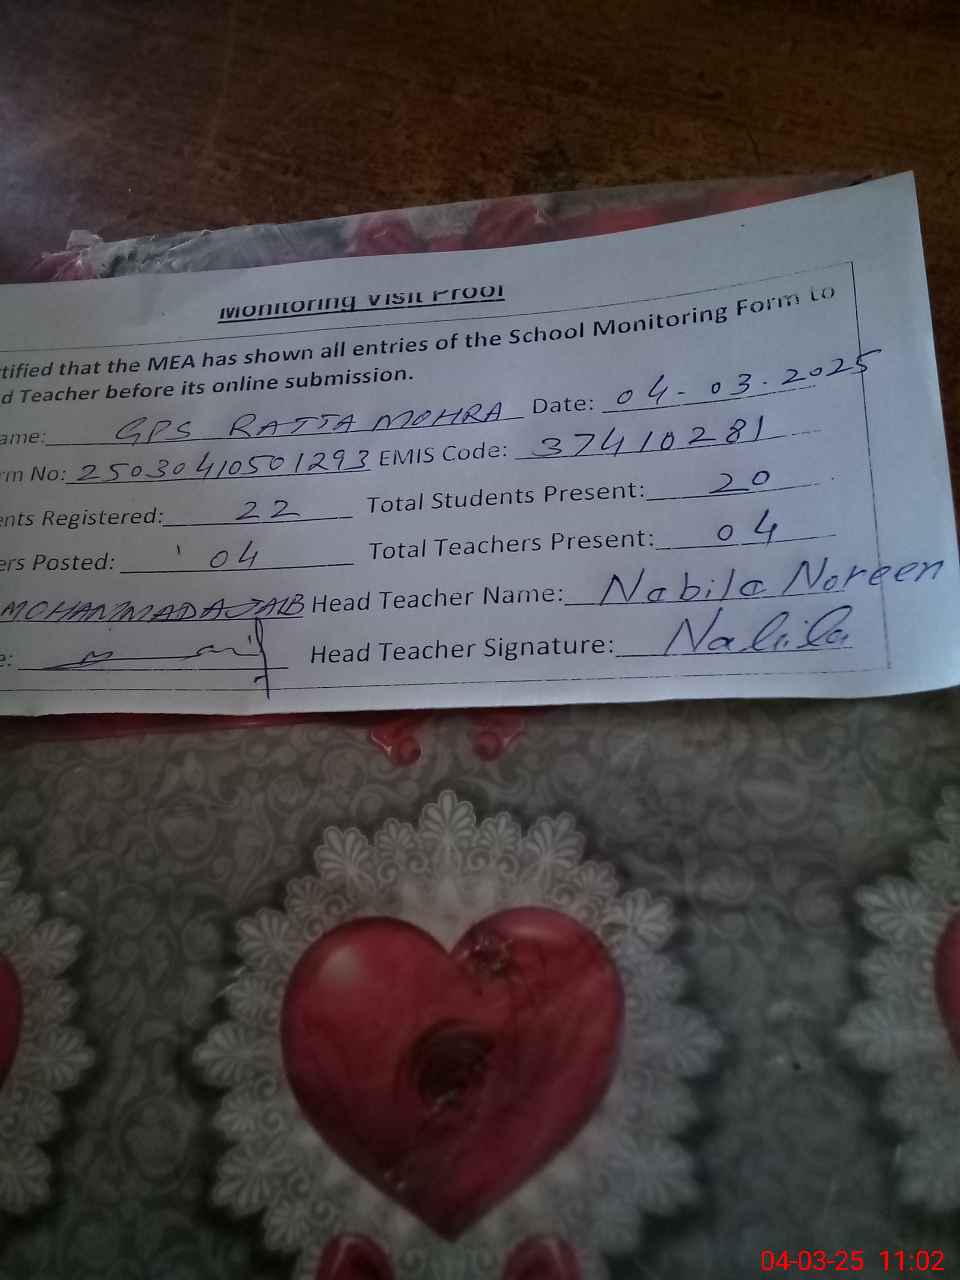 Monitoring Visit Proof
tified that the MEA has shown all entries of the School Monitoring Form to
d Teacher before its online submission.
ame: GPS RATTA MOHRA Date: 04-03.2025
rm No: 25030410501293 EMIS Code: 37410281
ents Registered: 22 Total Students Present: 20
ers Posted: 04 Total Teachers Present: 04
MOHAMMAD AJAIB Head Teacher Name: Nabila Noreen
e: Head Teacher Signature: Nabila
04-03-25 11:02